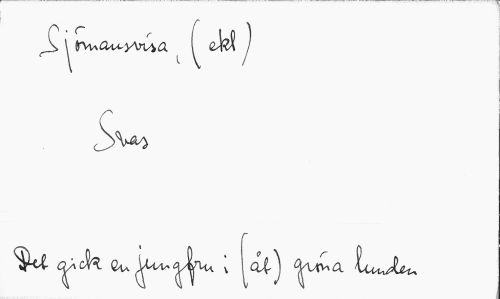 Sjömansvisa, (ekl)
Svas
Det gick en jungfru i (åt) gröna lunden